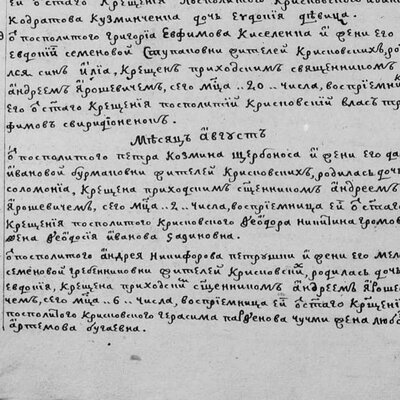 ей ѡ҃ стаго крещенія посполитого крисновского ивана
кодратова кузминченка дочъ евдокія дѣвица.
ѿ посполитого григорія евфимова киселенка и жени его
евдокіи семеновой ступаковни жителей крисновскихъ, ро
лся синъ илія, крещенъ приходскимъ священникомъ
андреемъ ярошевичемъ, сего м҃ца .. 20 .. числа, воспріемникъ
его ѿ с҃таго крещенія посполитій крисновскій власъ тр
фимовъ свиридоненокъ.
Мѣсяцъ августъ
ѿ посполитого петра козмина щербоноса и жени его да
ивановой бурмаковни жителей крисновскихъ, родилась доч
соломонія, крещена приходскимъ с҃щенникомъ андреемъ
ярошевичемъ, сего м҃ца .. 2 .. числа, воспріемница ей ѿ с҃таго
крещенія посполитого крисновского ѳеѡдора никитина громов
жена ѳеодосія иванова
ѿ посполитого андрея никифорова петрушки и жени его мел
семеновой гребѣнниковни жителей крисновскихъ, родилась дочъ
евдокія, крещена приходскимъ с҃щенникомъ андреемъ яроше
чемъ, сего м҃ца .. 6 .. числа, воспріемница ей ѿ с҃таго крщенія
посполитого крисновского герасима парѳенова чучми жена любо
артемова бугаевна.